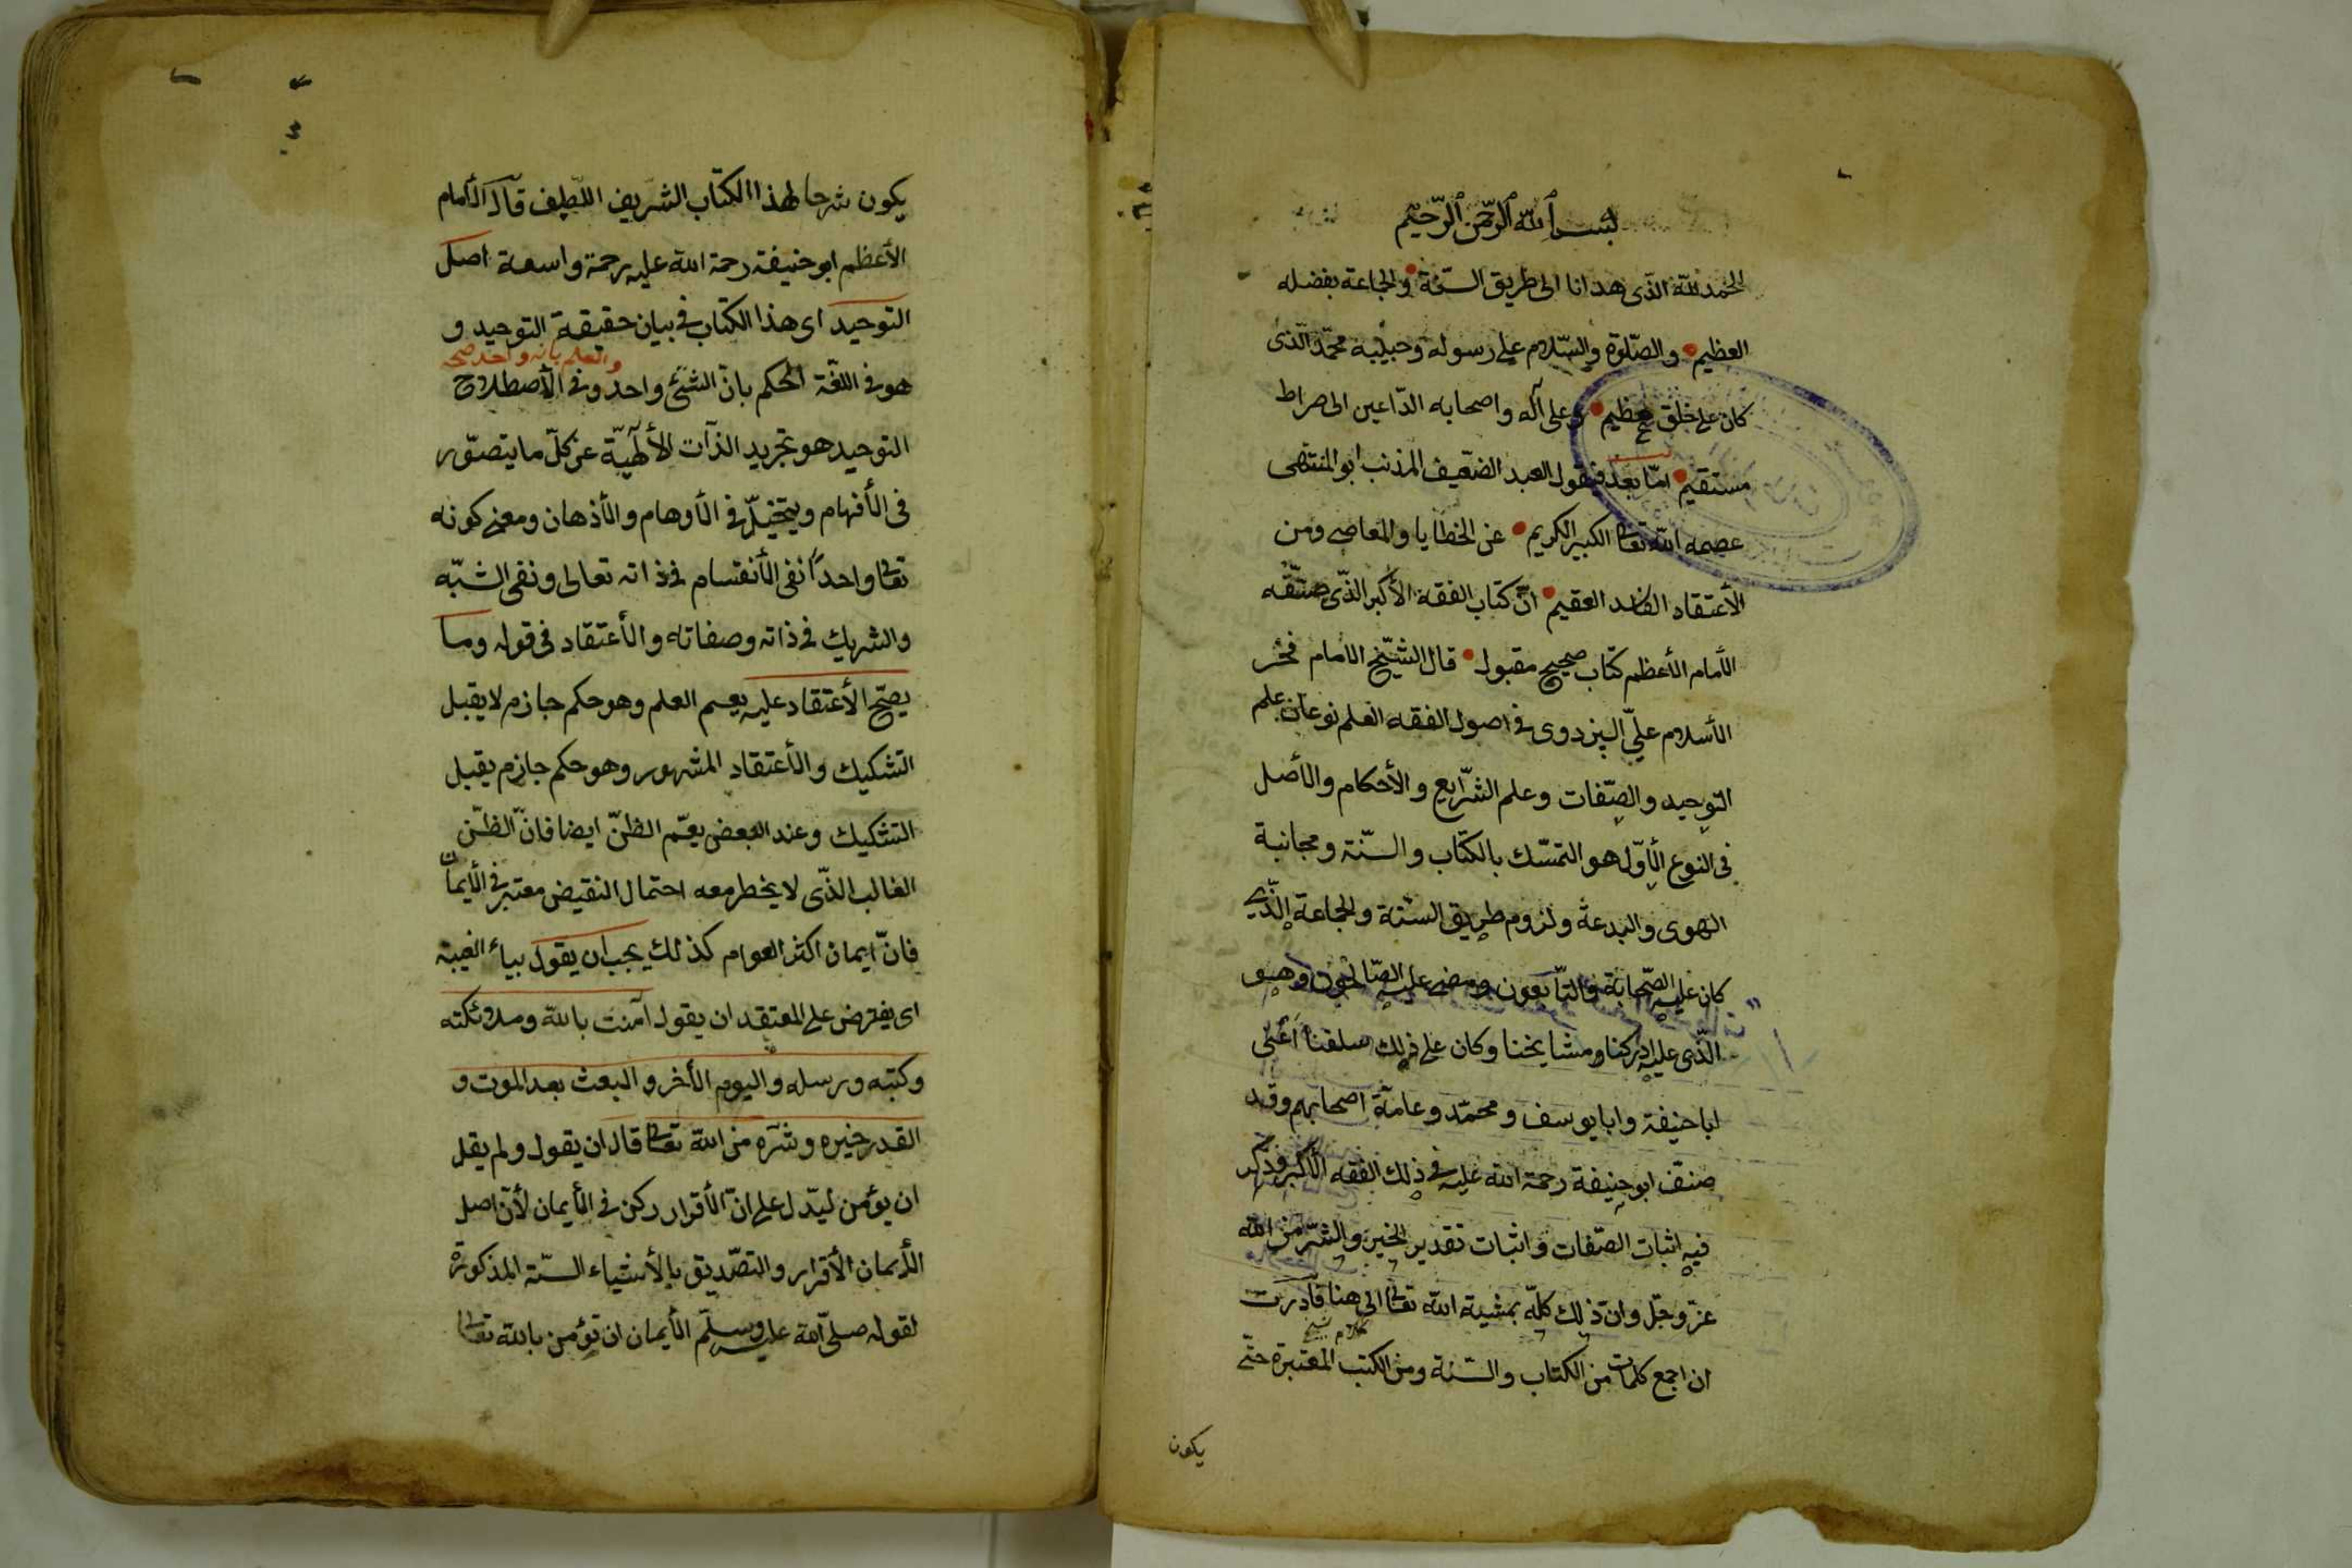 بسم الله الرحمن الرحيم
الحمد لله الذى هدانا الى طريق السنة والجماعة بفضله
العظيم والصلوة والسلام على رسوله وحبيبه محمد الذى
كان على خلق عظيم وعلى آله واصحابه الداعين الى صراط
مستقيم اما بعد فيقول العبد الضعيف المذنب ابو المنتهى
عصمه الله تعالى الكبير الكريم عن الخطايا والمعاصى ومن
الأعتقاد الفاسد العقيم ان كتاب الفقه الأكبر الذى صنفه
الأمام الأعظم كتاب صحيح مقبول قال الشيخ الامام فخر
الأسلام على البزدوى فى اصول الفقه العلم نوعان علم
التوحيد والصفات وعلم الشرايع والأحكام والأصل
فى النوع الأول هو التمسك بالكتاب والسنة ومجانبة
الهوى والبدعة ولزوم طريق السنة والجماعة الذى
كان عليه الصحابة والتابعون ومضى عليه الصالحون وهو
الذى عليه ادركنا ومشايخنا وكان على ذلك سلفنا أعنى
ابا حنيفة وابا يوسف ومحمد وعامة اصحابهم وقد
صنف ابو حنيفة رحمة الله عليه فى ذلك الفقه الأكبر وذكر
فيه اثبات الصفات واثبات تقدير الخير والشر من الله
عز وجل وان ذلك كله بمشية الله تعالى الى هنا فأدرت
كلام شيخ
ان اجمع كلمات من الكتاب والسنة ومن الكتب المعتبرة حتى
يكون
يكون شرحا لهذا الكتاب الشريف اللطيف قال الأمام
الأعظم ابو حنيفة رحمة الله عليه رحمة واسعة اصل
التوحيد اى هذا الكتاب فى بيان حقيقة التوحيد و
والعلم بانه واحد صح
هو فى اللغة الحكم بان الشئ واحد وفى الأصطلاح
التوحيد هو تجريد الذات الألهية عن كل ما يتصور
فى الأفهام ويتخيل فى الأوهام والأذهان ومعنى كونه
تعالى واحدا نفى الأنقسام فى ذاته تعالى ونفى الشبه
والشريك فى ذاته وصفاته والأعتقاد فى قوله وما
يصح الأعتقاد عليه يعم العلم وهو حكم جازم لا يقبل
التشكيك والأعتقاد المشهور وهو حكم جازم يقبل
التشكيك وعند البعض يعم الظن ايضا فان الظن
الغالب الذى لا يخطر معه احتمال النقيض معتبر فى الأيمان
فان ايمان اكثر العوام كذلك يجب ان يقول بياء الغيبة
اى يفترض على المعتقد ان يقول آمنت بالله وملائكته
وكتبه ورسله واليوم الأخر والبعث بعد الموت و
القدر خيره وشره من الله تعالى قال ان يقول ولم يقل
ان يؤمن ليدل على ان الأقرار ركن فى الأيمان لأن اصل
الأيمان الأقرار والتصديق بالأشياء الستة المذكورة
لقوله صلى الله عليه وسلم الأيمان ان تؤمن بالله تعالى